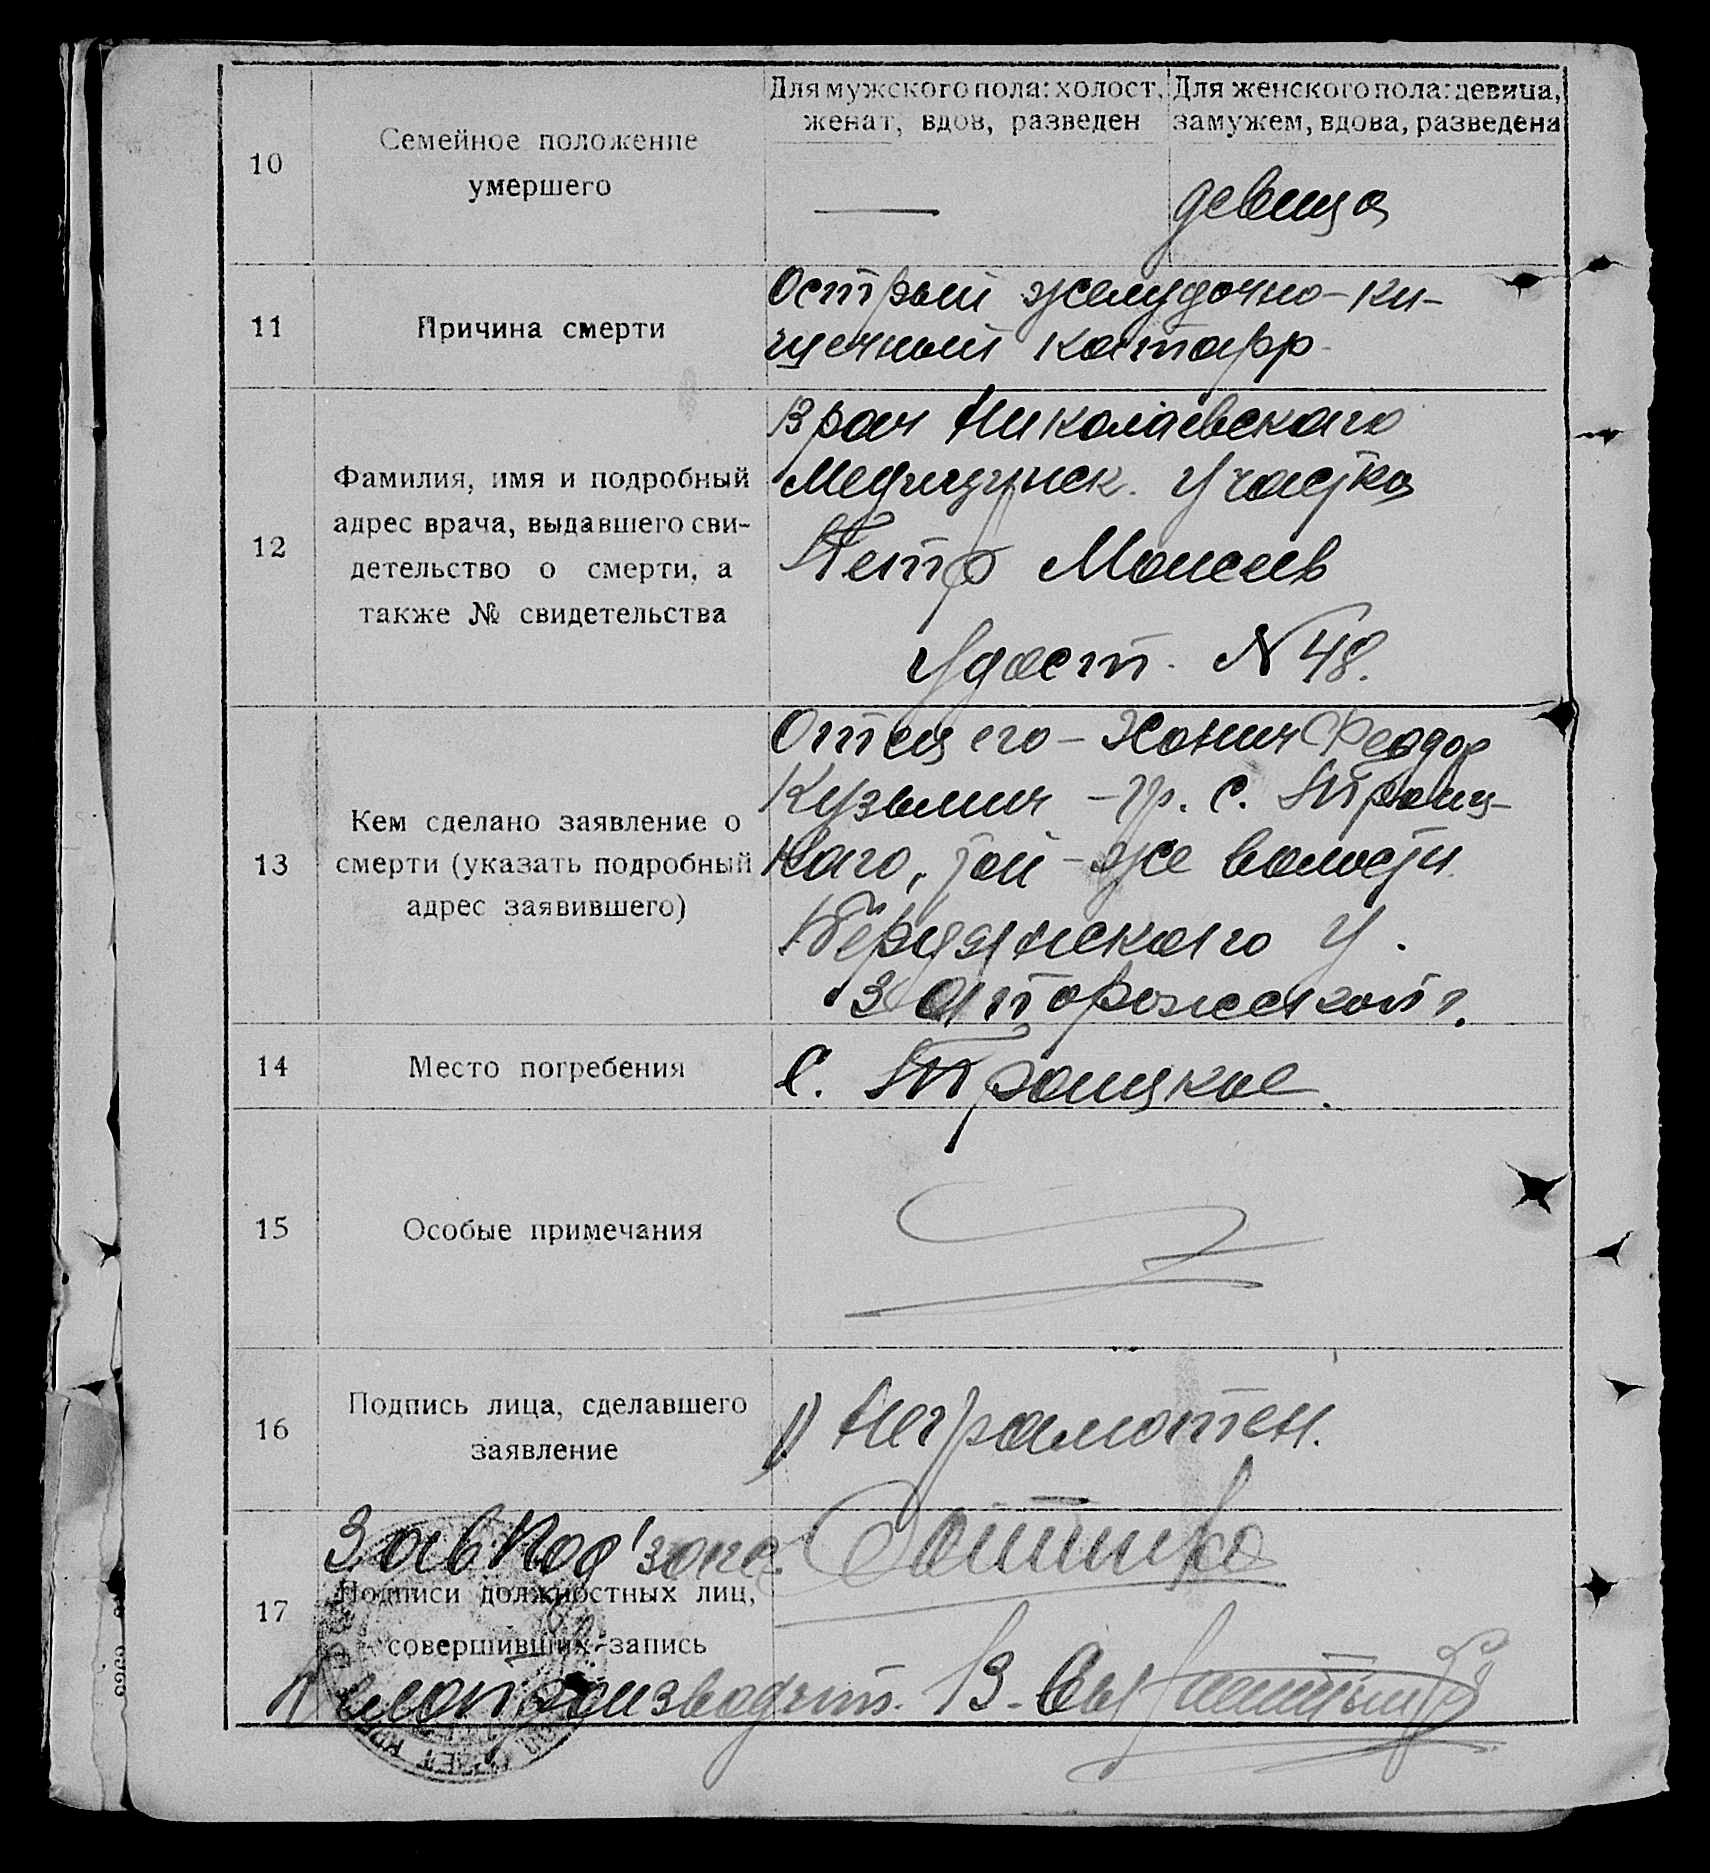 Для мужского пола: холост, женат, вдов, разведен
Для женского пола: девица, замужем, вдова, разведена
10
Семейное положение
умершего
—
девица
11
Причина смерти
Острый желудочно-ки-
шечный катарр
12
Фамилия, имя и подробный
адрес врача, выдавшего сви-
детельство о смерти, а
также № свидетельства
Врач Николаевского
Медицинск. Участка
Петр Моисеев
Удост. N 48.
13
Кем сделано заявление о
смерти (указать подробный
адрес заявившего)
Отец его - Феодор
Кузьмич - гр. с. Троиц-
каго, той-же волости
Бердянского У.
Запорожской г.
14
Место погребения
С. Троицкое.
15
Особые примечания
16
Подпись лица, сделавшего
заявление
1) Неграмотен.
17
Зав Под'
Подписи должностных лиц,
совершивших запись
Делопроизводит. В.